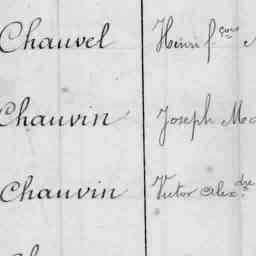 Chauvel Henri fçois
Chauvin Joseph Ma
Chauvin Victor Alexdre